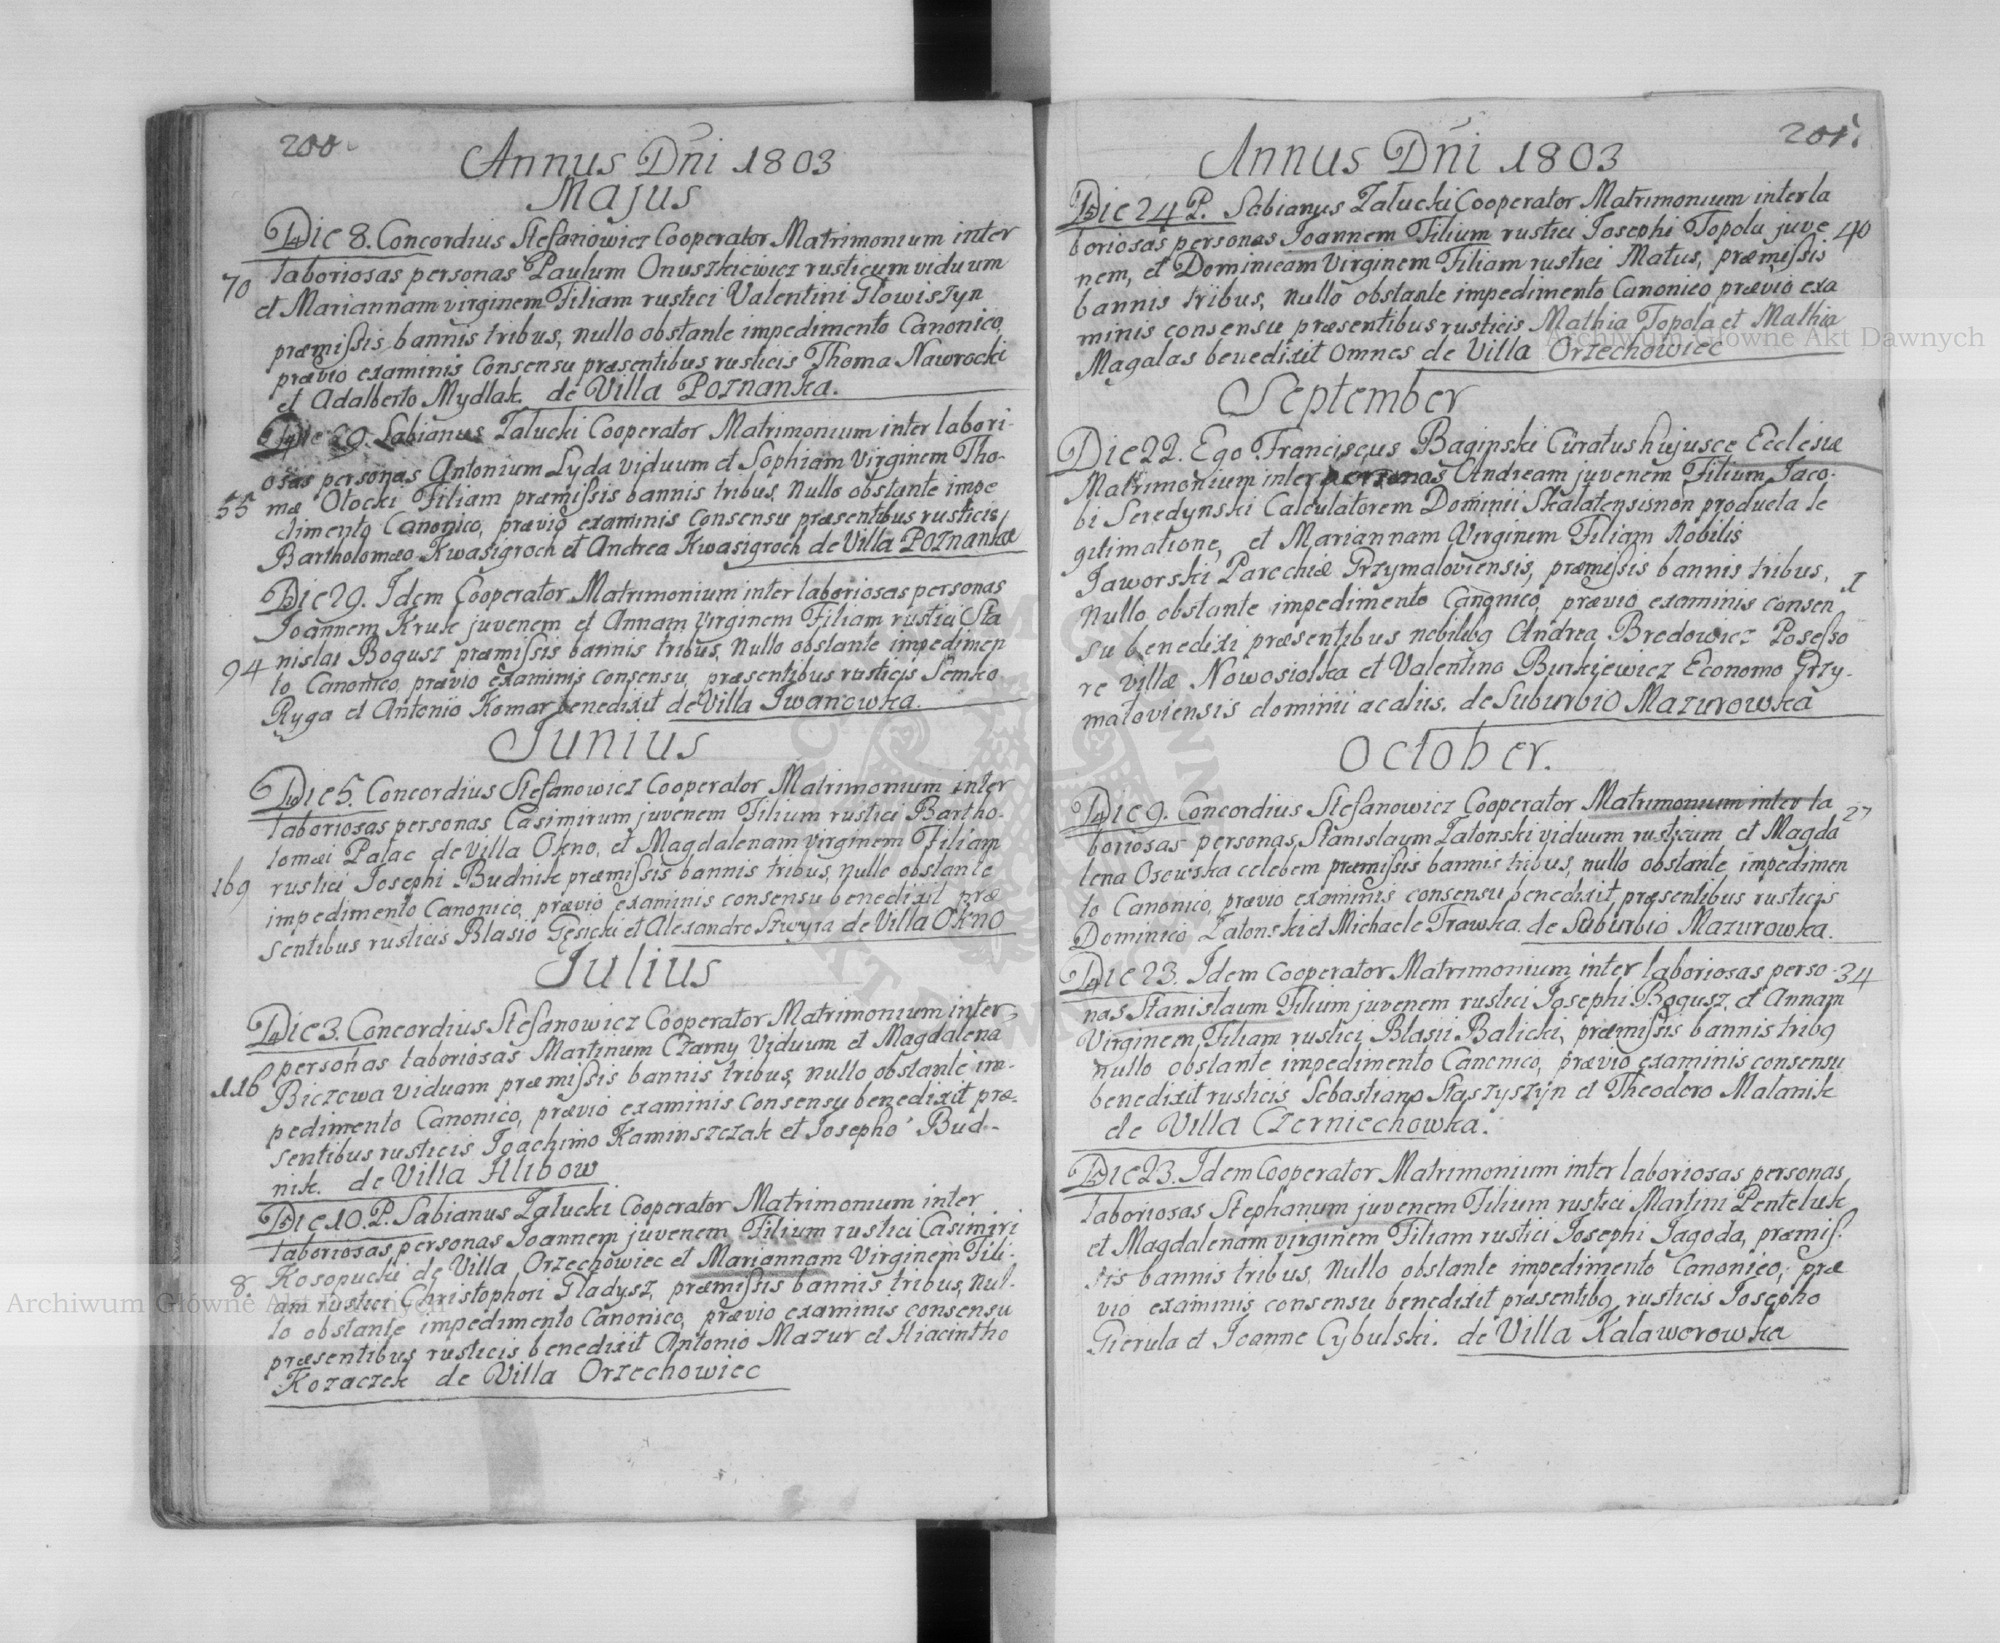 200
Annus Dñi 1803
Majus
Die 8. Concordius Stefanowicz Cooperator Matrimonium inter
70 laboriosas personas Paulum Onuszkiewicz rusticum viduum
et Mariannam virginem Filiam rustici Valentini Glowiszyn
præmissis bannis tribus, nullo obstante impedimento Canonico,
prævio examinis consensu præsentibus rusticis Thoma Nawrocki
et Adalberto Mydlak. de Villa Poznanka.
Die 29. Sabianus Zalucki Cooperator Matrimonium inter labori-
osas personas Antonium Lyda viduum et Sophiam Virginem Tho-
55 mæ Otocki Filiam præmissis bannis tribus, Nullo obstante impe
dimento Canonico, prævio examinis consensu præsentibus rusticis
Bartholomæo Kwasigroch et Andrea Kwasigroch de Villa Poznanka
Die 29. Idem Cooperator Matrimonium inter laboriosas personas
Joannem Kruk juvenem et Annam Virginem Filiam rustici Sta
nislai Bogusz præmissis bannis tribus, Nullo obstante impedimen
94 to Canonico, prævio examinis consensu, præsentibus rusticis Semko
Ryga et Antonio Komar benedixit de Villa Iwanowka.
Junius
Die 5. Concordius Stefanowicz Cooperator Matrimonium inter
laboriosas personas Casimirum juvenem Filium rustici Bartho-
lomæi Patac de Villa Okno, et Magdalenam virginem Filiam
169 rustici Josephi Budnik præmissis bannis tribus, nullo obstante
impedimento Canonico, prævio examinis consensu benedixit præ
sentibus rusticis Blasio Gęsicki et Alexandro de Villa Okno
Julius
Die 3. Concordius Stefanowicz Cooperator Matrimonium inter
personas laboriosas Martinum Czarny Viduum et Magdalena
116 Biczowa viduam præmissis bannis tribus, nullo obstante im-
pedimento Canonico, prævio examinis consensu benedixit præ-
sentibus rusticis Joachimo Kaminszczak et Josepho Bud-
nik. de Villa Hlibow
Die 10. P. Sabianus Zalucki Cooperator Matrimonium inter
laboriosas personas Joannem juvenem Filium rustici Casimiri
Kosopucki de Villa Orzechowiec et Mariannam Virginem Fili-
8. am rustici Christophori Gladysz, præmissis bannis tribus, Nul-
lo obstante impedimento Canonico, prævio examinis consensu
præsentibus rusticis benedixit Antonio Mazur et Hiacintho
Kozaczek de Villa Orzechowiec
201.
Annus Dñi 1803
Die 24 P. Sabianus Zalucki Cooperator Matrimonium inter la
boriosas personas Joannem Filium rustici Josephi Topola juve 40
nem, et Dominicam Virginem Filiam rustici Matus, præmissis
bannis tribus, nullo obstante impedimento Canonico prævio exa
minis consensu præsentibus rusticis Mathia Topola et Mathia
Magalas benedixit omnes de Villa Orzechowiec
September
Die 22. Ego Franciscus Baginski Curatus hujusce Ecclesiæ
Matrimonium inter personas Andream juvenem Filium Jaco-
bi Seredynski Calculatorem Dominii Skalatensis non producta le
gitimatione, et Mariannam Virginem Filiam Nobilis
Jaworski Parochiæ Grzymaloviensis, præmissis bannis tribus,
Nullo obstante impedimento Canonico, prævio examinis consen 1
su benedixi præsentibus nobilibq Andrea Bredowicz Posesso
re villæ Nowosiolka et Valentino Burkiewicz Economo Grzy-
maloviensis dominii acalüs. de Suburbio Mazurowka
October.
Die 9. Concordius Stefanowicz Cooperator Matrimonium inter la 27
boriosas personas, Stanislaum Zatonski viduum rusticum et Magda
lena Osowska celebem præmissis bannis tribus, nullo obstante impedimen
to Canonico, prævio examinis consensu benedixit, præsentibus rusticis
Dominico Zatonski et Michaele Trawka. de Suburbio Mazurowka.
Die 23. Idem Cooperator Matrimonium inter laboriosas perso- 34
nas Stanislaum Filium juvenem rustici Josephi Bogusz, et Annam
Virginem, Filiam rustici Blasii Balicki, præmissis bannis tribq
nullo obstante impedimento Canonico, prævio examinis consensu
benedixit rusticis Sebastiano Staszyszyn et Theodoro Malanik
de Villa Czerniechowka.
Die 23. Idem Cooperator Matrimonium inter laboriosas personas
laboriosas Stephanum juvenem Filium rustici Martini Penteluk
et Magdalenam virginem Filiam rustici Josephi Jagoda, præmis-
sis bannis tribus, Nullo obstante impedimento Canonico, præ
vio examinis consensu benedixit præsentibq rusticis Josepho
Gierula et Joanne Cybulski. de Villa Kalaworowka
Archiwum Główne Akt Dawnych
Archiwum Główne Akt Dawnych